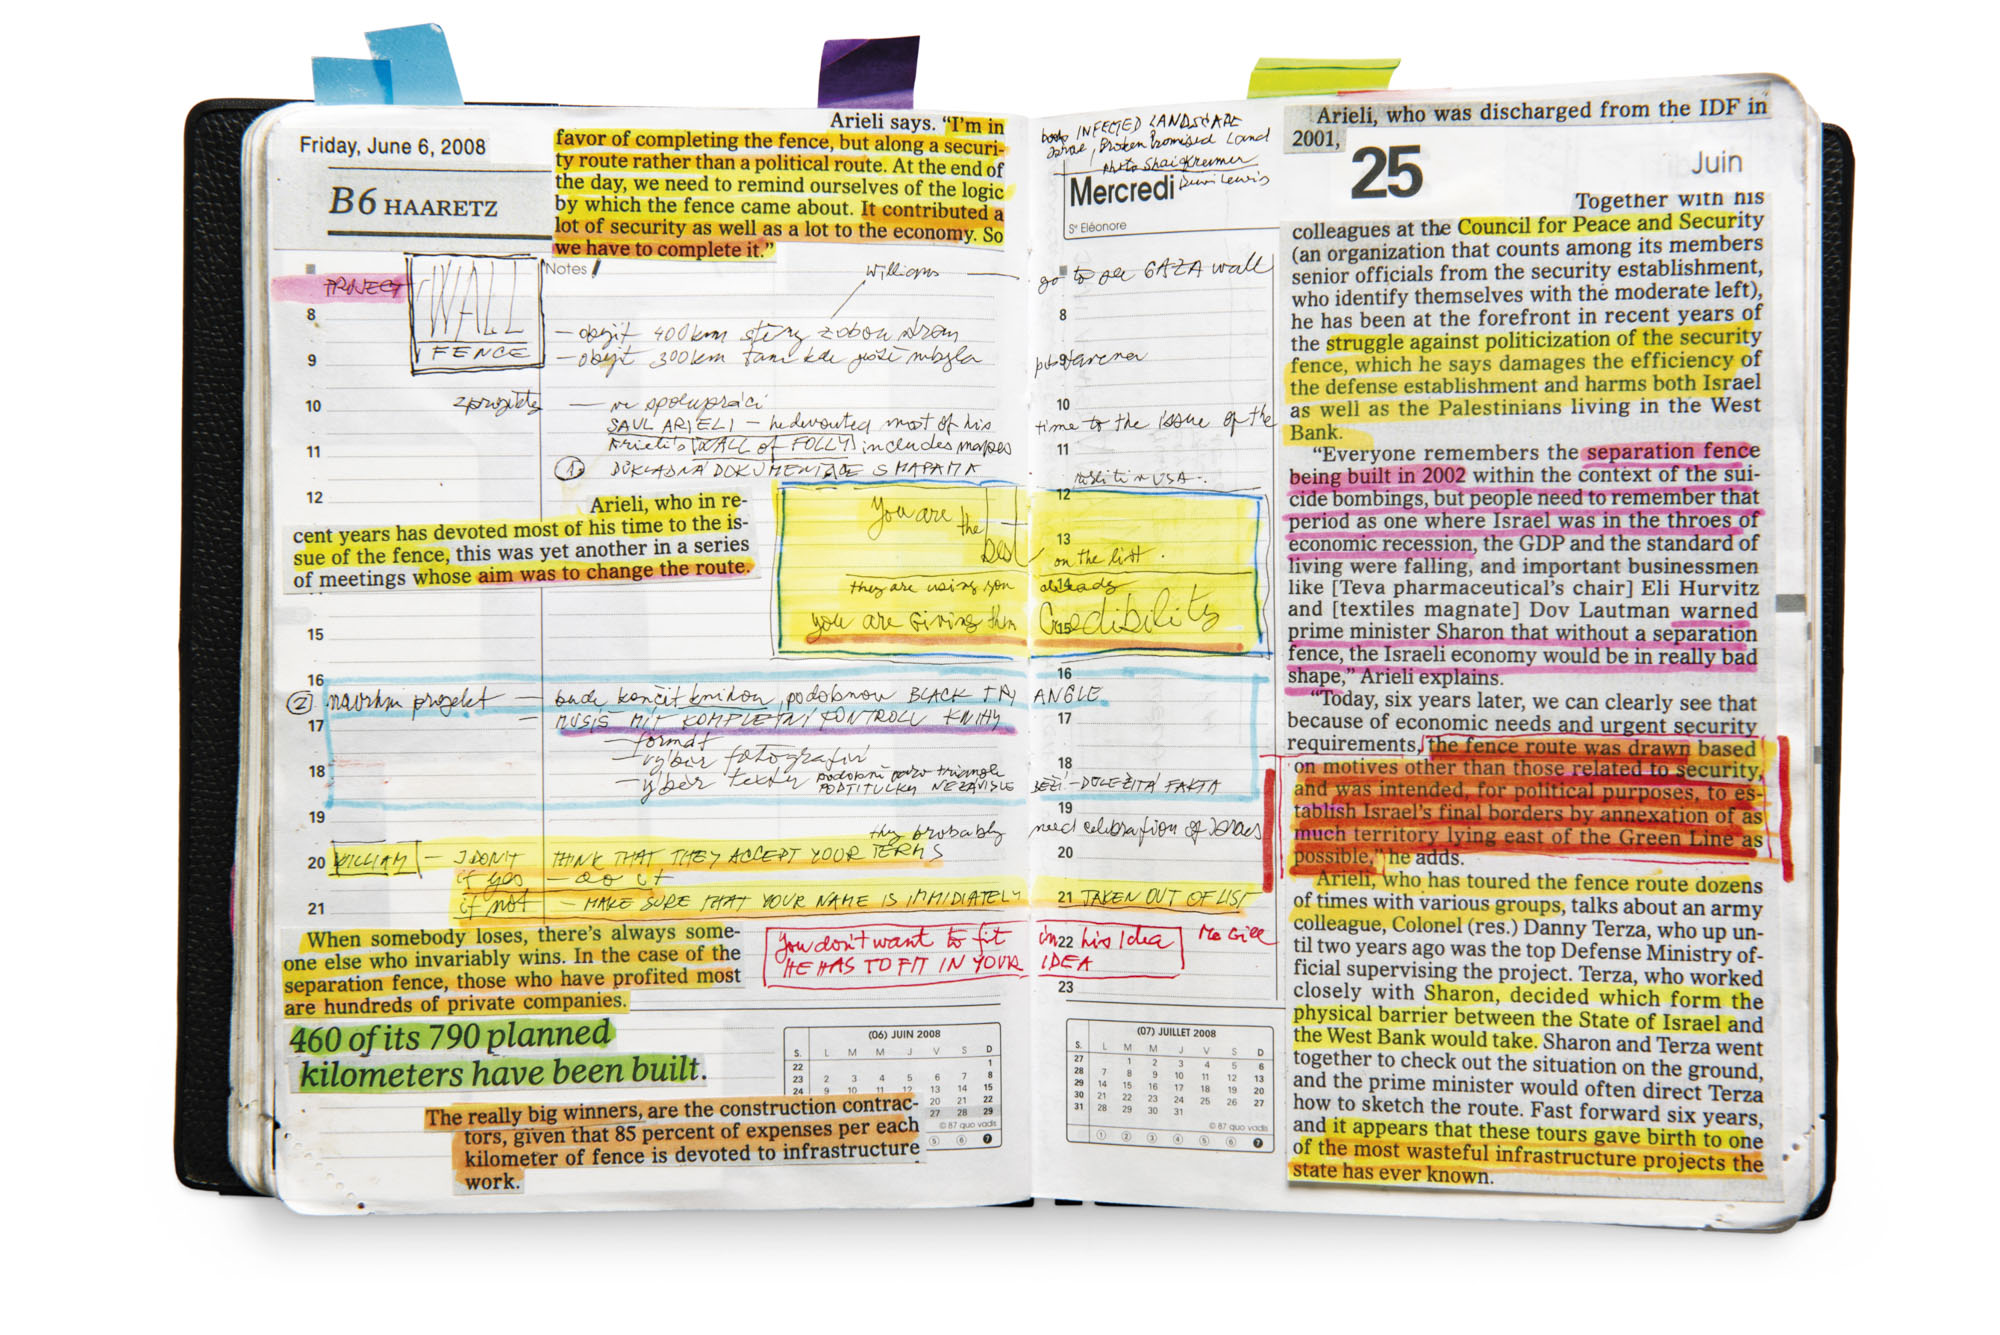 Friday, June 6, 2008
B6 HAARETZ
Arieli says. “I’m in
favor of completing the fence, but along a securi-
ty route rather than a political route. At the end of
the day, we need to remind ourselves of the logic
by which the fence came about. It contributed a
lot of security as well as a lot to the economy. So
we have to complete it.”
Notes
PROJECT
WALL
FENCE
8
9
10
11
12
15
16
17
18
19
20
21
williams
— obejít 400km stěny z obou stran
— obejít 300km tam kde ještě nebyla
— ve spolupráci
SAUL ARIELI — he devouted most of his
Arieli's WALL OF FOLLY includes mapes
1. DŮKLADNÁ DOKUMENTACE S MAPAMA
Arieli, who in re-
cent years has devoted most of his time to the is-
sue of the fence, this was yet another in a series
of meetings whose aim was to change the route.
You are the best on the list.
they are using you already
you are Giving them Credibility
2 navrhni projekt — bude končit knihou, podobnou BLACK TRY ANGLE
— MUSÍŠ MÍT KOMPLETNÍ KONTROLU KNIHY
— format
— výběr fotografií
— výběr textu podobně jako triangle
PODTITULKY NEZÁVISLE BĚŽÍ - DŮLEŽITÁ FAKTA
they probably need celibration of
WILLIAM — I DON'T THINK THAT THEY ACCEPT YOUR TERMS
if yes — do it
if not — MAKE SURE THAT YOUR NAME IS IMMIDIATELY TAKEN OUT OF LIST
You don't want to fit in his Idea
HE HAS TO FIT IN YOUR IDEA
Mc Gill
When somebody loses, there’s always some-
one else who invariably wins. In the case of the
separation fence, those who have profited most
are hundreds of private companies.
460 of its 790 planned
kilometers have been built.
The really big winners, are the construction contrac-
tors, given that 85 percent of expenses per each
kilometer of fence is devoted to infrastructure
work.
(06) JUIN 2008
S. L M M J V S D
22 1
23 2 3 4 5 6 7 8
24 9 10 11 12 13 14 15
20 21 22
27 28 29
© 87 quo vadis
5 6 7
book INFECTED LANDSCAPE
Israel, Broken Promised Land
Photo Shai Kremer
Dewi Lewis
Mercredi
Sᵉ Eléonore
25
Juin
go to see GAZA wall
8
10
time to the issue of the
11
12
13
14
15
16
17
18
19
20
21
22
23
(07) JUILLET 2008
S. L M M J V S D
27 1 2 3 4 5 6
28 7 8 9 10 11 12 13
29 14 15 16 17 18 19 20
30 21 22 23 24 25 26 27
31 28 29 30 31
© 87 quo vadis
1 2 3 4 5 6 7
Arieli, who was discharged from the IDF in
2001,
Together with his
colleagues at the Council for Peace and Security
(an organization that counts among its members
senior officials from the security establishment,
who identify themselves with the moderate left),
he has been at the forefront in recent years of
the struggle against politicization of the security
fence, which he says damages the efficiency of
the defense establishment and harms both Israel
as well as the Palestinians living in the West
Bank.
“Everyone remembers the separation fence
being built in 2002 within the context of the sui-
cide bombings, but people need to remember that
period as one where Israel was in the throes of
economic recession, the GDP and the standard of
living were falling, and important businessmen
like [Teva pharmaceutical’s chair] Eli Hurvitz
and [textiles magnate] Dov Lautman warned
prime minister Sharon that without a separation
fence, the Israeli economy would be in really bad
shape,” Arieli explains.
“Today, six years later, we can clearly see that
because of economic needs and urgent security
requirements, the fence route was drawn based
on motives other than those related to security,
and was intended, for political purposes, to es-
tablish Israel’s final borders by annexation of as
much territory lying east of the Green Line as
possible,” he adds.
Arieli, who has toured the fence route dozens
of times with various groups, talks about an army
colleague, Colonel (res.) Danny Terza, who up un-
til two years ago was the top Defense Ministry of-
ficial supervising the project. Terza, who worked
closely with Sharon, decided which form the
physical barrier between the State of Israel and
the West Bank would take. Sharon and Terza went
together to check out the situation on the ground,
and the prime minister would often direct Terza
how to sketch the route. Fast forward six years,
and it appears that these tours gave birth to one
of the most wasteful infrastructure projects the
state has ever known.